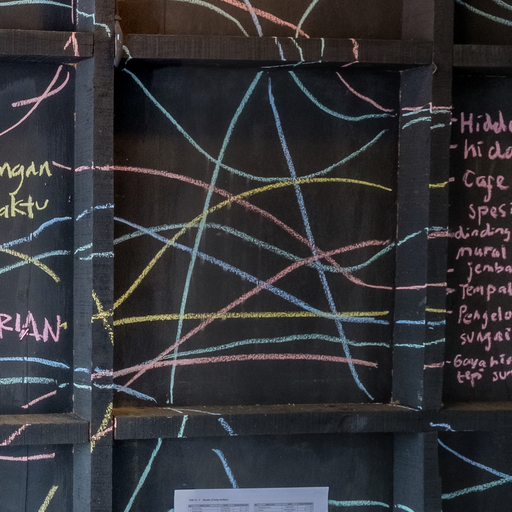 ngan
aktu
RIAN
Hidd
hida
Cafe
spesi
dinding
mural
jemba
Tempat
Pengelo
sungai
Gaya hi
tepi sun